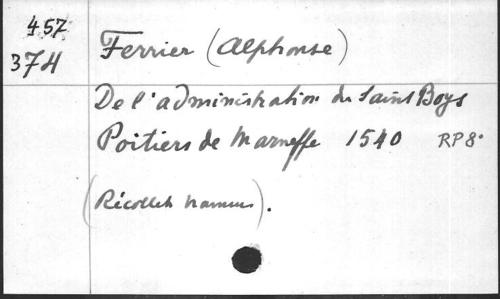 457
374
Ferrier (Alphonse)
De l'administration du Saint Boys
Poitiers de Marneffe 1540 RP8°
(Récollets Namur).